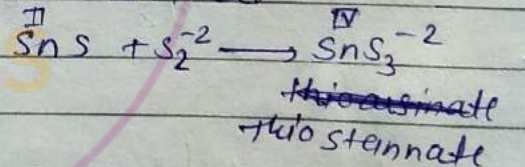 II IV
SnS + S₂⁻² ⟶ SnS₃⁻²
thioarsinate
thiostannate